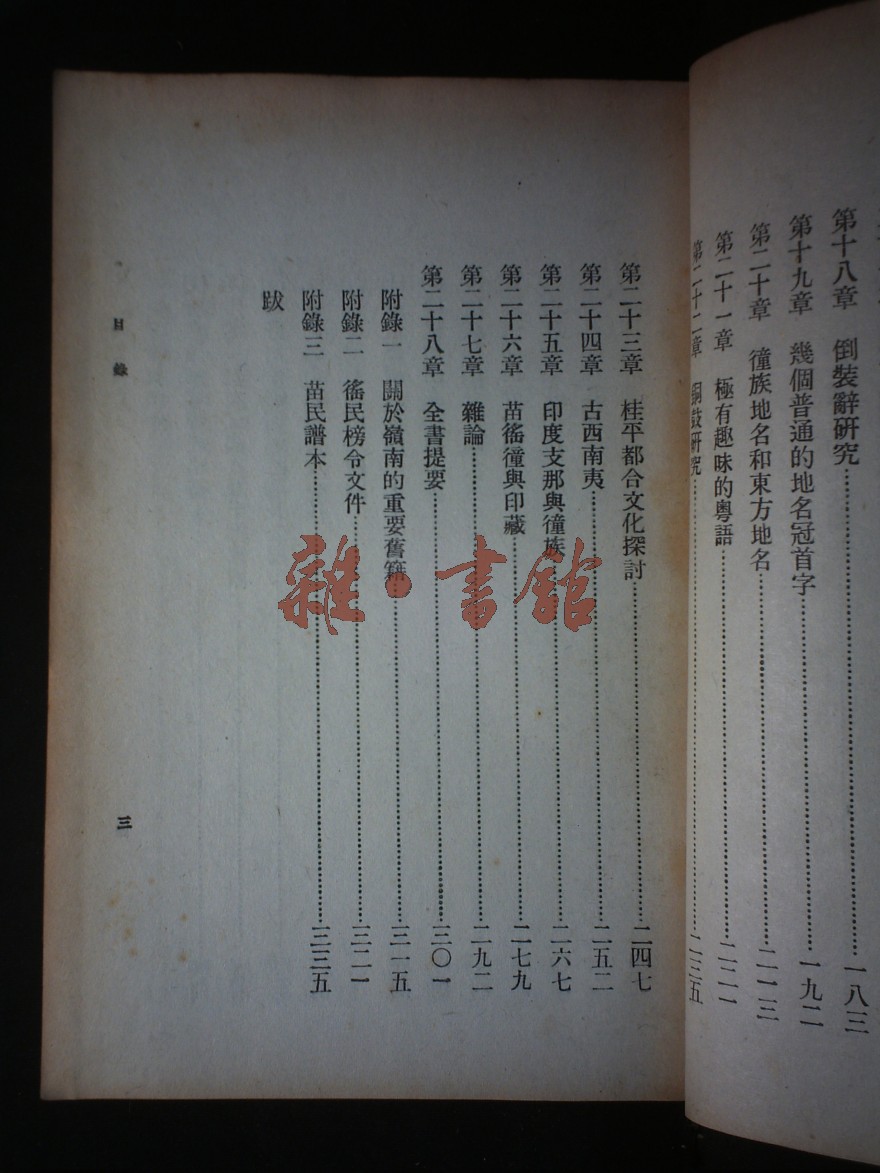 第十八章 倒裝辭研究……一八三
第十九章 幾個普通的地名冠首字……一九二
第二十章 獞族地名和東方地名……二一三
第二十一章 極有趣味的粵語……二二一
第二十二章 銅鼓研究……二三五
第二十三章 桂平都合文化探討……二四七
第二十四章 古西南夷……二五二
第二十五章 印度支那與獞族……二六七
第二十六章 苗徭獞與印藏……二七九
第二十七章 雜論……二九二
第二十八章 全書提要……三〇一
附錄一 關於嶺南的重要舊籍……三一五
附錄二 徭民榜令文件……三二一
附錄三 苗民譜本……三三五
跋
目錄
三
雜·書館